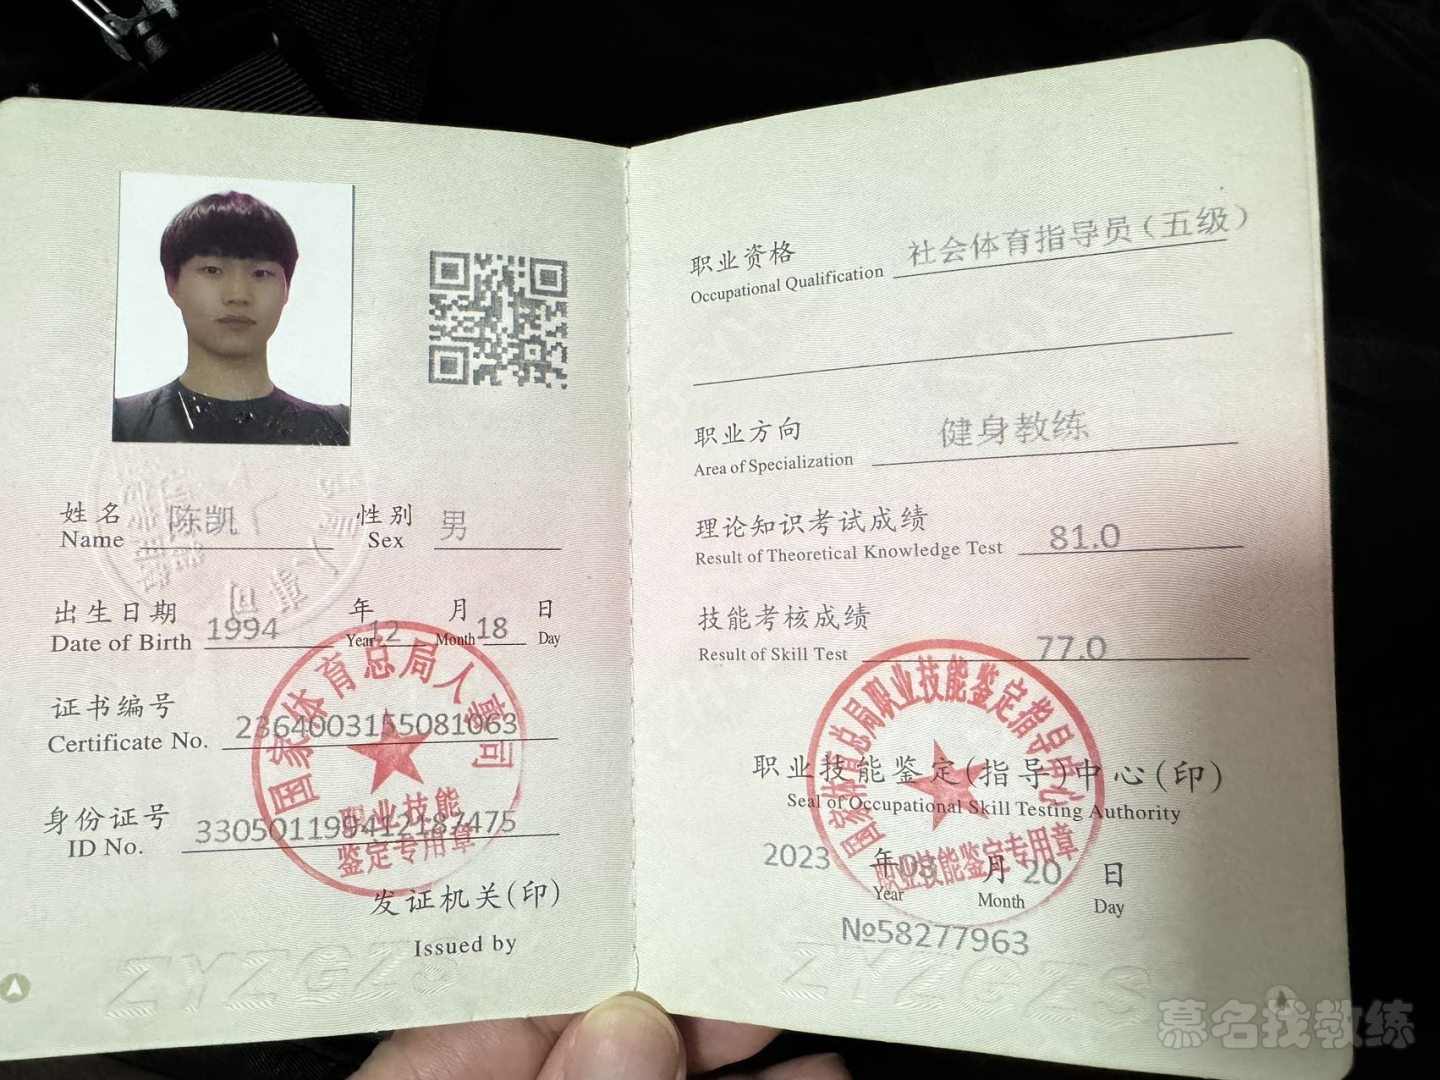 姓名 陈凯 性别 男
Name Sex
出生日期 1994 年 12 月 18 日
Date of Birth Year Month Day
证书编号 2364003155081063
Certificate No.
身份证号 330501199412187475
ID No.
国家体育总局人事司
职业技能
鉴定专用章
发证机关(印)
Issued by
ZYZGZS
职业资格 社会体育指导员(五级)
Occupational Qualification
职业方向 健身教练
Area of Specialization
理论知识考试成绩 81.0
Result of Theoretical Knowledge Test
技能考核成绩 77.0
Result of Skill Test
国家体育总局职业技能鉴定指导中心
职业技能鉴定(指导)中心(印)
Seal of Occupational Skill Testing Authority
职业技能鉴定专用章
2023 年 03 月 20 日
Year Month Day
№58277963
ZYZGZS
慕名找教练